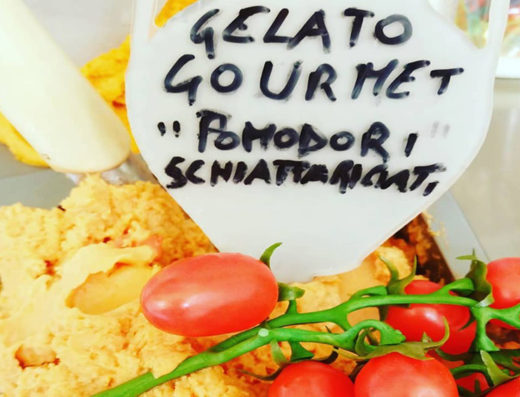 GELATO
GOURMET
"POMODORI"
SCHIATTARICIATI